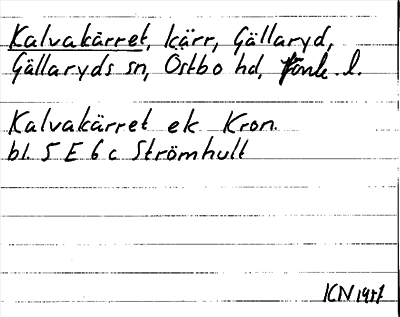 Kalvakärret, kärr, Gällaryd,
Gällaryds sn, Östbo hd, Jönk. l.
Kalvakärret ek Kron.
bl. 5 E 6 c Strömhult
KN